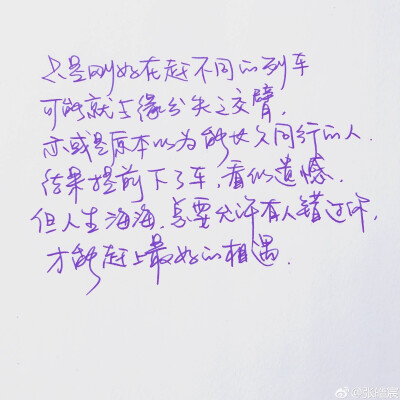 只是刚好在赶不同的列车
可能就与缘分失之交臂，
亦或是原本以为能长久同行的人，
结果提前下了车，看似遗憾，
但人生海海，总要允许有人错过你，
才能赶上最好的相遇．
@张皓宸